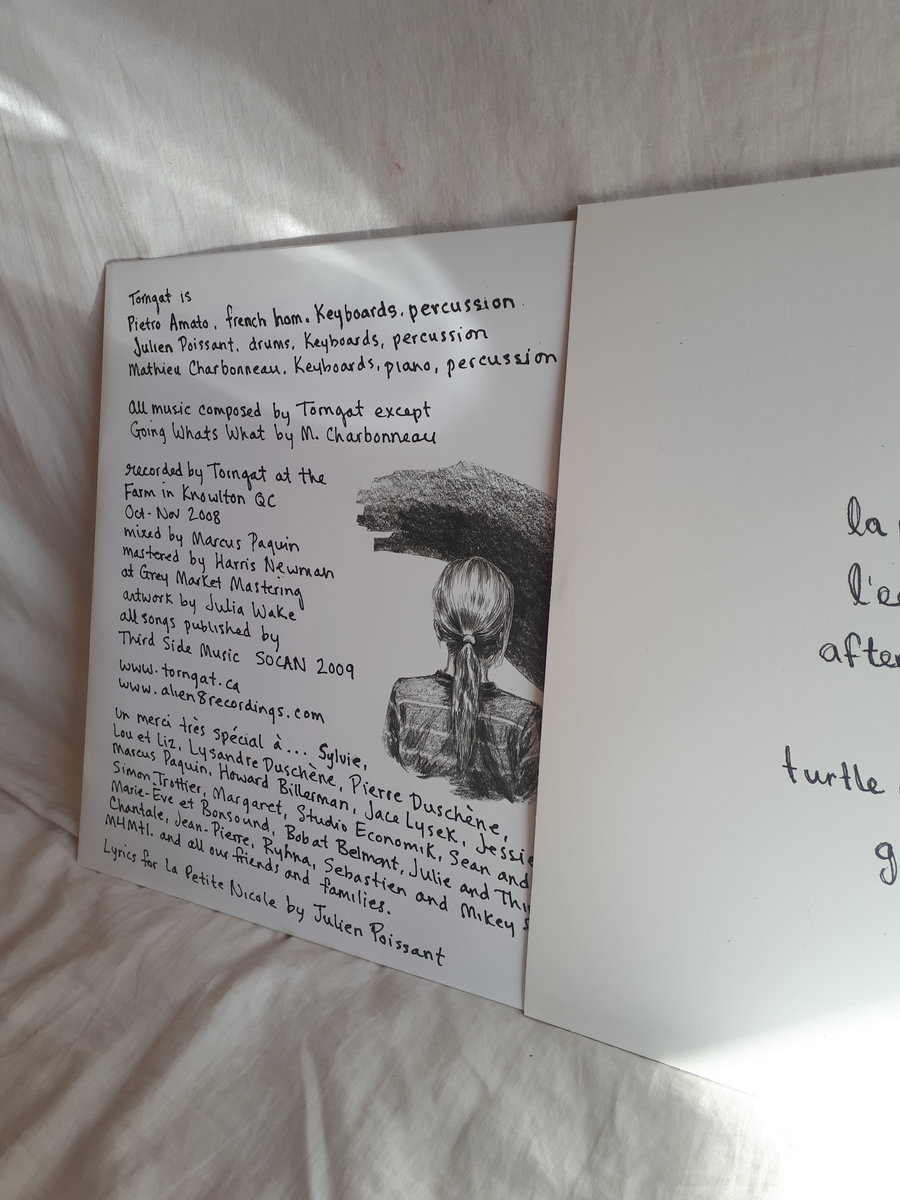 Torngat is
Pietro Amato. french horn. Keyboards. percussion
Julien Poissant. drums. Keyboards, percussion
Mathieu Charbonneau. Keyboards, piano, percussion
all music composed by Torngat except
Going Whats What by M. Charbonneau
recorded by Torngat at the
Farm in Knowlton QC
Oct-Nov 2008
mixed by Marcus Paquin
mastered by Harris Newman
at Grey Market Mastering
artwork by Julia Wake
all songs published by
Third Side Music SOCAN 2009
www.torngat.ca
www.alien8recordings.com
un merci très spécial à... Sylvie,
Lou et Liz, Lysandre Duschène, Pierre Duschène,
Marcus Paquin, Howard Billerman, Jace Lysek, Jessie
Simon Trottier, Margaret, Studio Economik, Sean and
Marie-Eve et Bonsound, Bobat Belmont, Julie and
Chantale, Jean-Pierre, Ryhna, Sebastien and Mikey
M4Mtl. and all our friends and families.
Lyrics for La Petite Nicole by Julien Poissant
la
turtle